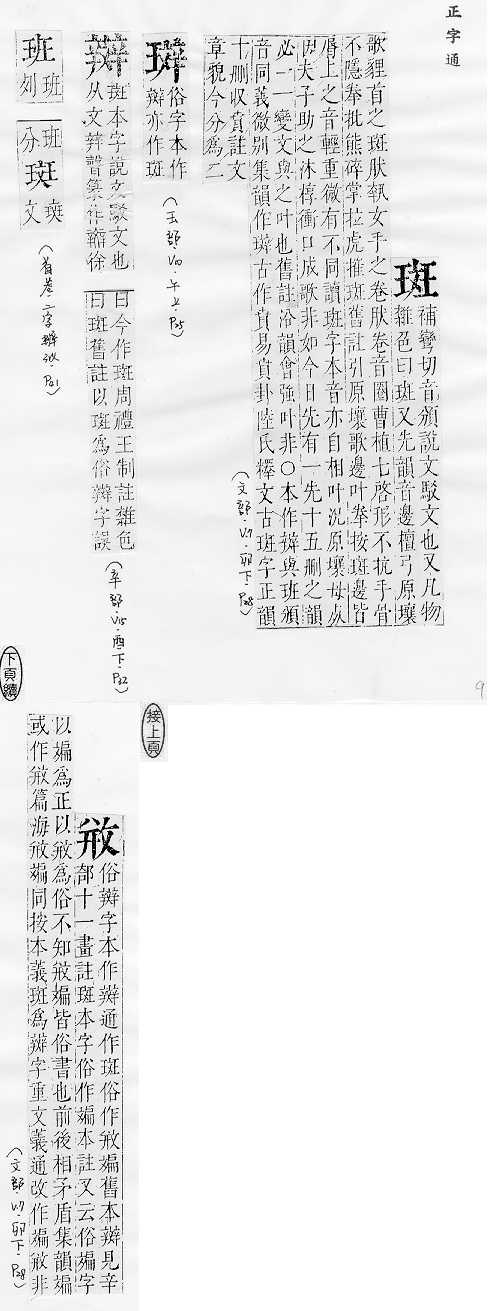 正字通
斑
補彎切音頒說文駁文也又凡物
雜色曰斑又先韻音邊檀弓原壤
歌貍首之斑肰執女手之卷肰卷音圈曹植七啓形不抗手骨
不隱拳批熊碎掌拉虎摧斑舊註引原壤歌邊叶拳按斑邊皆
脣上之音輕重微有不同讀斑字本音亦自相叶况原壤母死
因夫子助之沐槨衝口成歌非如今日先有一先十五刪之韻
必一一變文與之叶也舊註沿韻會強叶非○本作辬與班頒
音同義微别集韻作辬古作賁易賁卦陸氏釋文古斑字正韻
十刪收賁註文
章貌今分爲二
(文部·V7·卯下·P28)
俗字本作
辬亦作斑
(玉部·V10·午上·P25)
斑本字說文駁文也
从文辡聲篆作辬徐
曰今作斑周禮王制註雜色
曰斑舊註以斑爲俗辬字誤
(辛部·V15·酉下·P32)
班
班
列
班
分
斑
斑
文
(首卷·二字辨似·P21)
下頁續
9
接上頁
俗辬字本作辬通作斑俗作㪵斒舊本辬見辛
部十一畫註斑本字俗作斒本註又云俗斒字
以斒爲正以㪵爲俗不知㪵斒皆俗書也前後相矛盾集韻斒
或作㪵篇海㪵斒同按本義斑爲辬字重文義通改作斒㪵非
(文部·V7·卯下·P28)